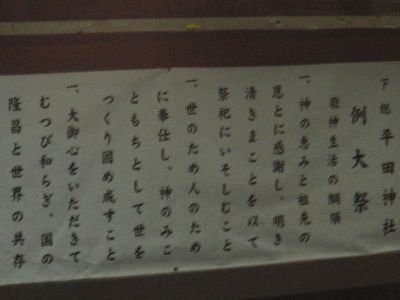 下総 平田神社
例大祭
敬神生活の綱領
一、神の恵みと祖先の
恩とに感謝し、明き
清きまことを以て
祭祀にいそしむこと
一、世のため人のため
に奉仕し、神のみこ
ともちとして世を
つくり固め成すこと
一、大御心をいただきて
むつび和らぎ、国の
隆昌と世界の共存